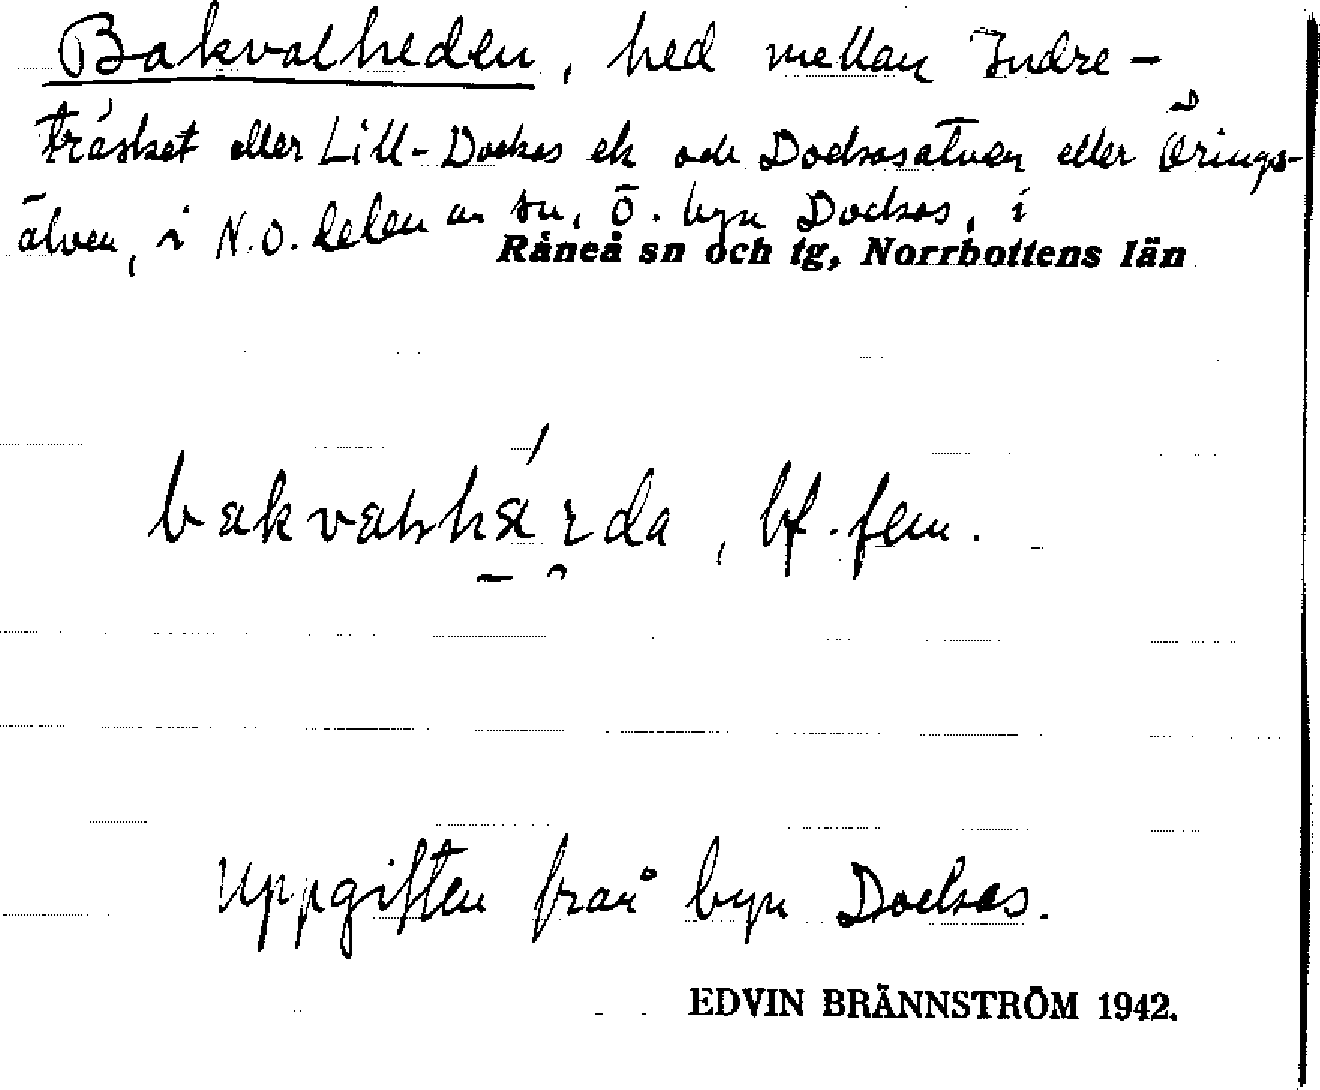 Bakvalheden, hed mellan Indre-
träsket eller Lill-Dockas ek och Dockasälven eller Örings-
älven, i N.O. delen av sn, Ö. byn Dockas, i
Råneå sn och tg, Norrbottens län
bf. fem.
Uppgiften från byn Dockas.
EDVIN BRÄNNSTRÖM 1942.